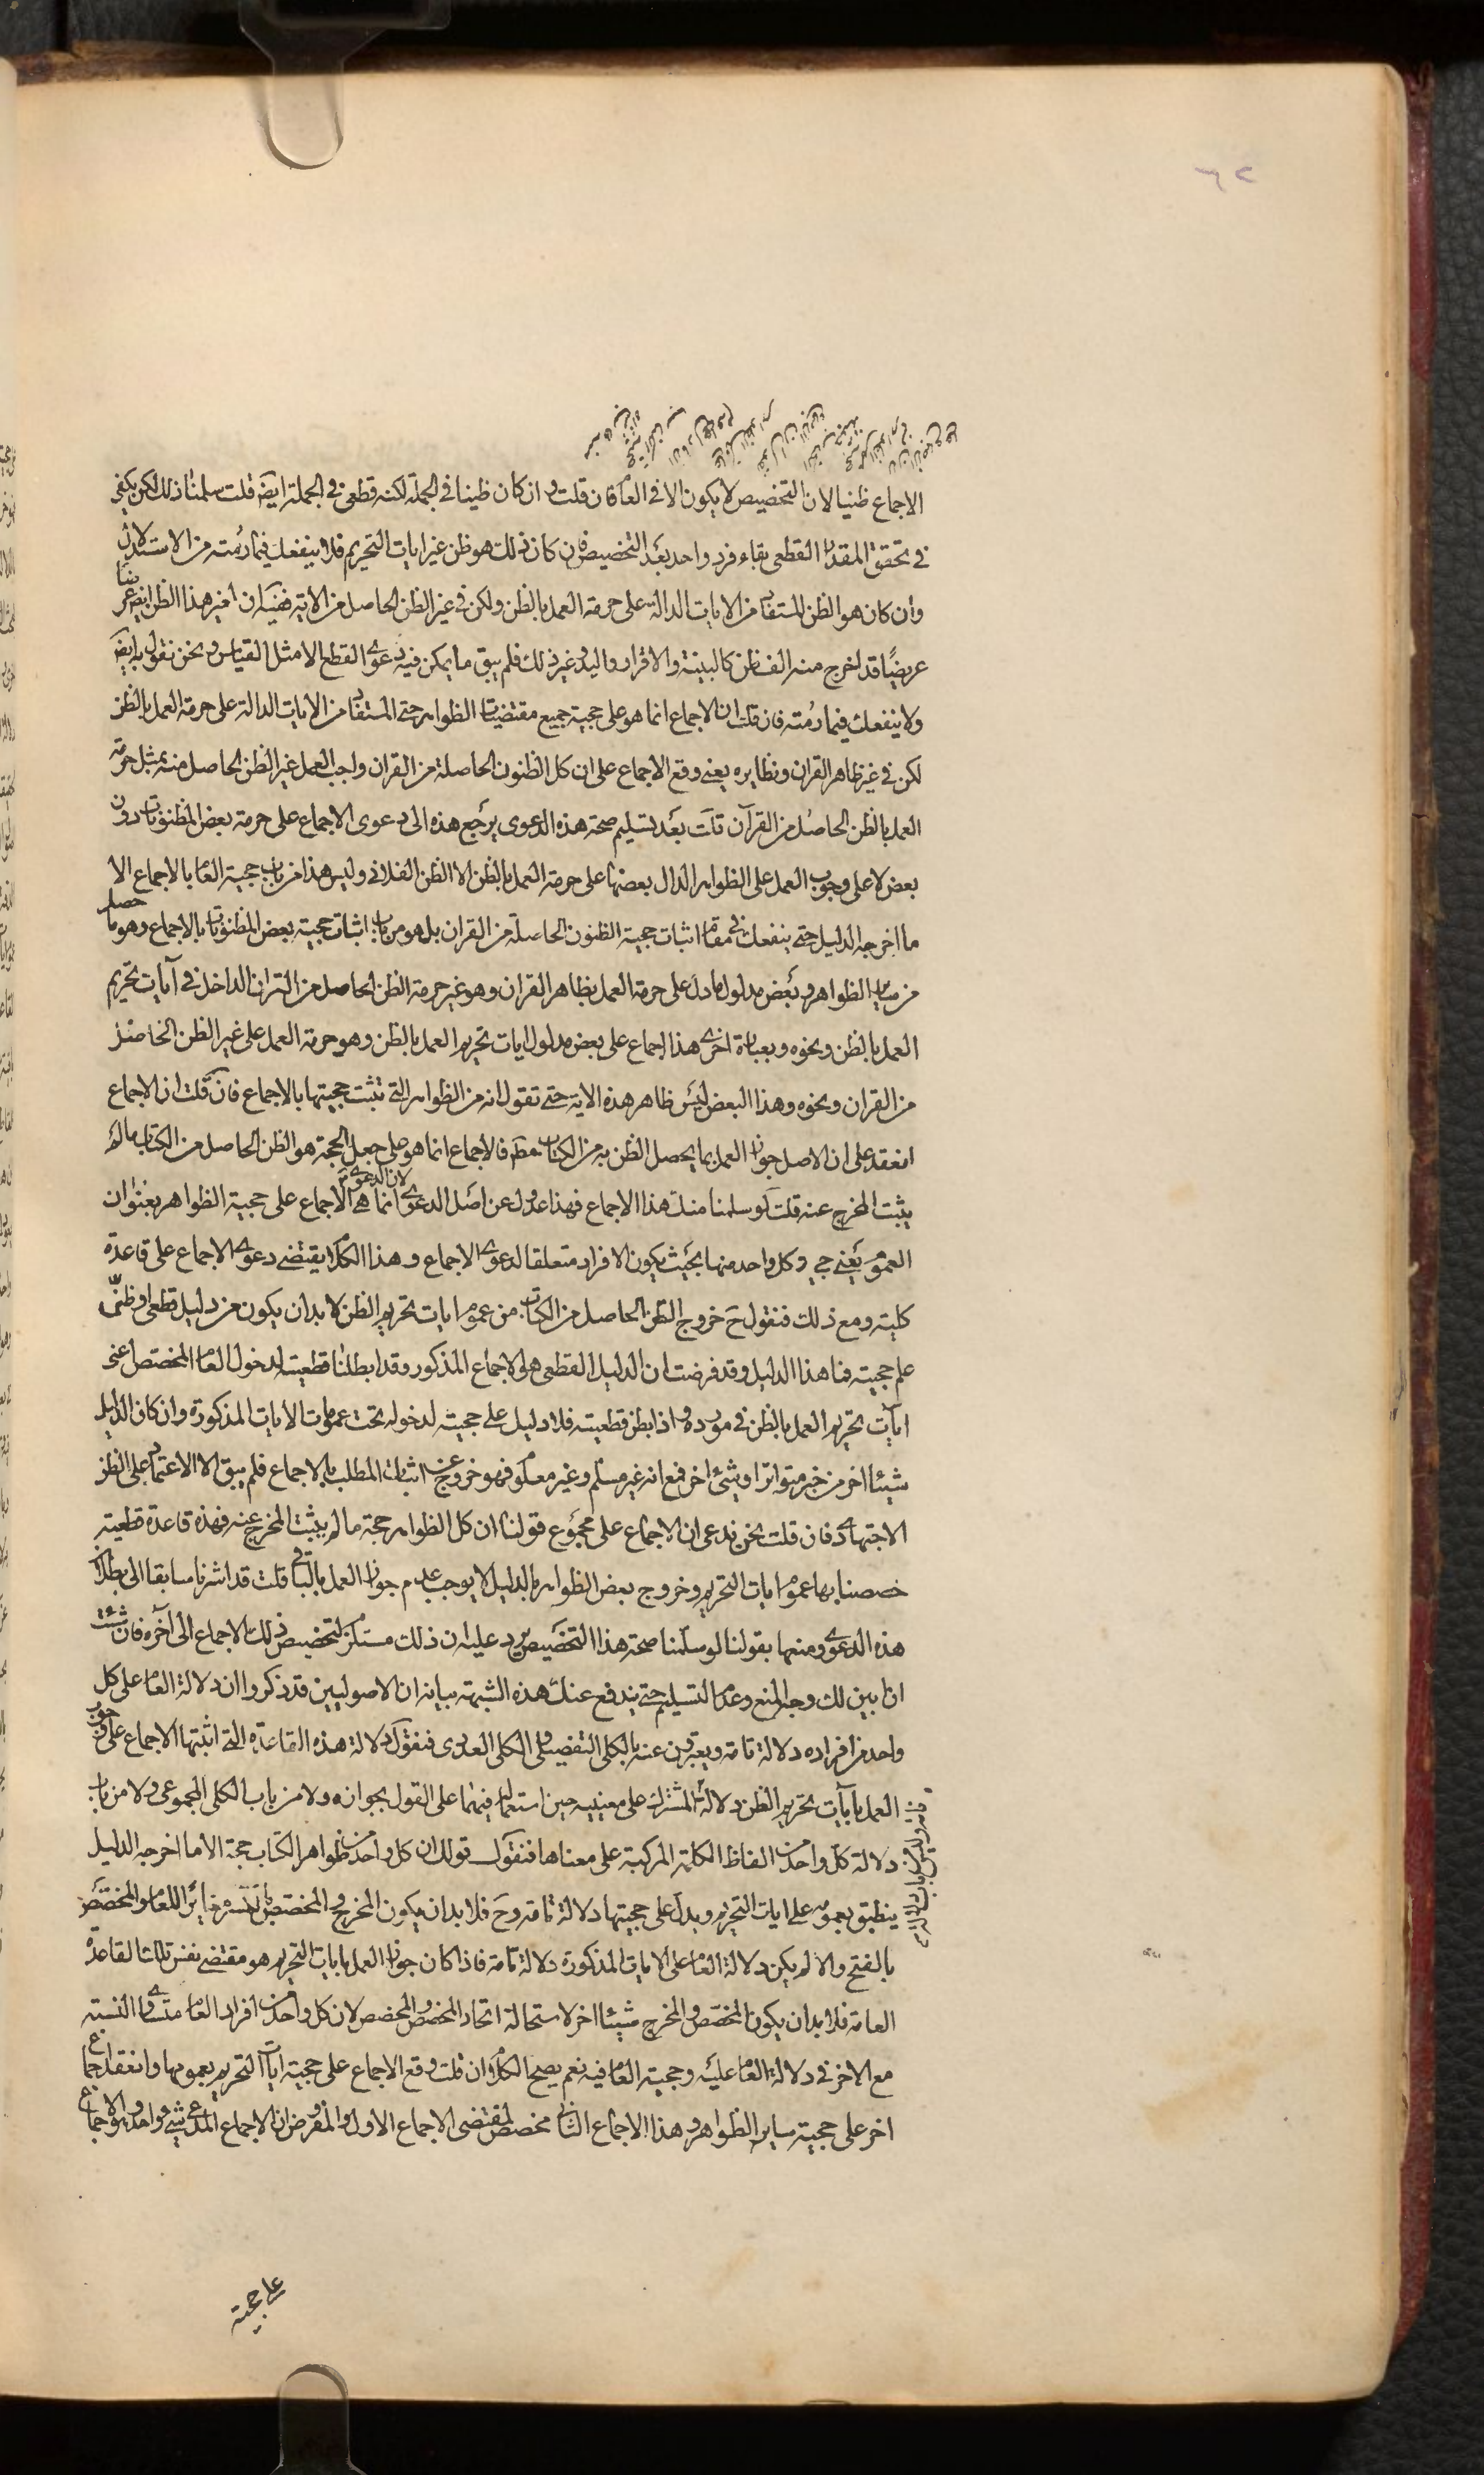 ٦٢
الاجماع ظنيا لان التخصيص لا يكون الا في العام فان قلت وان كان ظنيا في الجملة لكنه قطعي في الجملة ايضا قلت سلمنا ذلك لكن يكفي
في تحقق المقدار القطعي بقاء فرد واحد بعد التخصيص فان كان ذلك هو ظن غير ايات التحريم فلا ينفعك فيما رمته من الاستدلال
وان كان هو الظن المستفاد من الايات الدالة على حرمة العمل بالظن ولكن في غير الظن الحاصل من الاية ففيه ان غير هذا الظن ايضا
عريضا قد اخرج منه الف ظن كالبينة والاقرار واليد وغير ذلك فلم يبق ما يمكن فيه دعوى القطع الا مثل القياس ونحن نقول به ايضا
ولا ينفعك فيما رمته فان قلت ان الاجماع انما هو على حجية جميع مقتضيات الظواهر حتى المستفاد من الايات الدالة على حرمة العمل بالظن
لكن في غير ظاهر القران ونظايره يعني وقع الاجماع على ان كل الظنون الحاصلة من القران واجب العمل غير الظن الحاصل منه بمثل حرمة
العمل بالظن الحاصل من القرآن قلت بعد تسليم صحة هذه الدعوى يرجع هذه الى دعوى الاجماع على حرمة بعض المظنونات دون
بعض لا على وجوب العمل على الظواهر الدال بعضها على حرمة العمل بالظن الا الظن الفلاني وليس هذا من باب حجية العام بالاجماع الا
ما اخرجه الدليل حتى ينفعك في مقام اثبات حجية الظنون الحاصلة من القران بل هو من باب اثبات حجية بعض المظنونات بالاجماع وهو ما حصل
من ساير الظواهر وبعض مدلول ما دل على حرمة العمل بظاهر القران وهو غير حرمة الظن الحاصل من القران الداخل في آيات تحريم
العمل بالظن ونحوه وبعبارة اخرى هذا اجماع على بعض مدلول ايات تحريم العمل بالظن وهو حرمة العمل على غير الظن الحاصل
من القران ونحوه وهذا البعض ليس ظاهر هذه الاية حتى تقول انه من الظواهر التي تثبت حجيتها بالاجماع فان قلت ان الاجماع
انعقد على ان الاصل جواز العمل بما يحصل الظن به من الكتاب مط فالاجماع انما هو على جعل الحجة هو الظن الحاصل من الكتاب ما لم
يثبت المخرج عنه قلت لو سلمنا منك هذا الاجماع فهذا عدول عن اصل الدعوى لان الدعوى انما هي الاجماع على حجية الظواهر بعنوان
العموم يعني حجية كل واحد منها بحيث يكون الافراد متعلقا لدعوى الاجماع وهذا الكلام يقتضي دعوى الاجماع على قاعدة
كلية ومع ذلك فنقول ح خروج الظن الحاصل من الكتاب من عموم ايات تحريم الظن لا بد ان يكون من دليل قطعي او ظني
علم حجيته فما هذا الدليل وقد فرضت ان الدليل القطعي هو الاجماع المذكور وقد ابطلنا قطعيته لدخول العام المخصص اعني
ايات تحريم العمل بالظن في مورده واذا بطل قطعيته فلا دليل على حجيته لدخوله تحت عمومات الايات المذكورة وان كان الدليل
شيئا اخر من خبر متواتر او شيئ اخر فمع انه غير مسلم وغير معلوم فهو خروج عن اثبات المطلب بالاجماع فلم يبق الا الاعتماد على الظن
الاجتهادى فان قلت نحن ندعى ان الاجماع على مجموع قولنا ان كل الظواهر حجة ما لم يثبت المخرج عنه فهذه قاعدة قطعية
خصصنا بها عموم ايات التحريم وخروج بعض الظواهر بالدليل لا يوجب عدم جواز العمل بالباقي قلت قد اشرنا سابقا الى بطلان
هذه الدعوى ومنها بقولنا لو سلمنا صحة هذا التخصيص يرد عليه ان ذلك مستلزم لتخصيص ذلك الاجماع الى آخره فان شئت
ان ابين لك وجه المنع وعدم التسليم حتى يندفع عنك هذه الشبهة بيانه ان الاصوليين قد ذكروا ان دلالة العام على كل
واحد من افراده دلالة تامة ويعبرون عنه بالكلي التفصيلي والكلي العددى فنقول دلالة هذه القاعدة التي اثبتها الاجماع على جواز
العمل بآيات تحريم الظن دلالة المشترك على معنييه حين استعماله فيهما على القول بجوازه ولا من باب الكلي المجموعي ولا من باب
دلالة كل واحد من الفاظ الكلمة المركبة على معناها فنقول قولك ان كل واحد من ظواهر الكتاب حجة الا ما اخرجه الدليل
ينطبق بعمومه على ايات التحريم ويدل على حجيتها دلالة تامة وح فلا بد ان يكون المخرج والمخصص بالكسر مغايرا للعام والمخصص
بالفتح والا لم يكن دلالة العام على الايات المذكورة دلالة تامة فاذا كان جواز العمل بايات التحريم هو مقتضى نفس تلك القاعدة
العامة فلا بد ان يكون المخصص والمخرج شيئا اخر لاستحالة اتحاد المخصص والمخصص لان كل واحد من افراد العام متساوى النسبة
مع الاخر في دلالة العام عليه وحجية العام فيه نعم يصح الكلام ان قلت وقع الاجماع على حجية ايات التحريم بعمومها وانعقد اجماع
اخر على حجية ساير الظواهر وهذا الاجماع الثاني مخصص لمقتضى الاجماع الاول والمفروض ان الاجماع المدعى شيئ واحد وهو الاجماع
على حجية